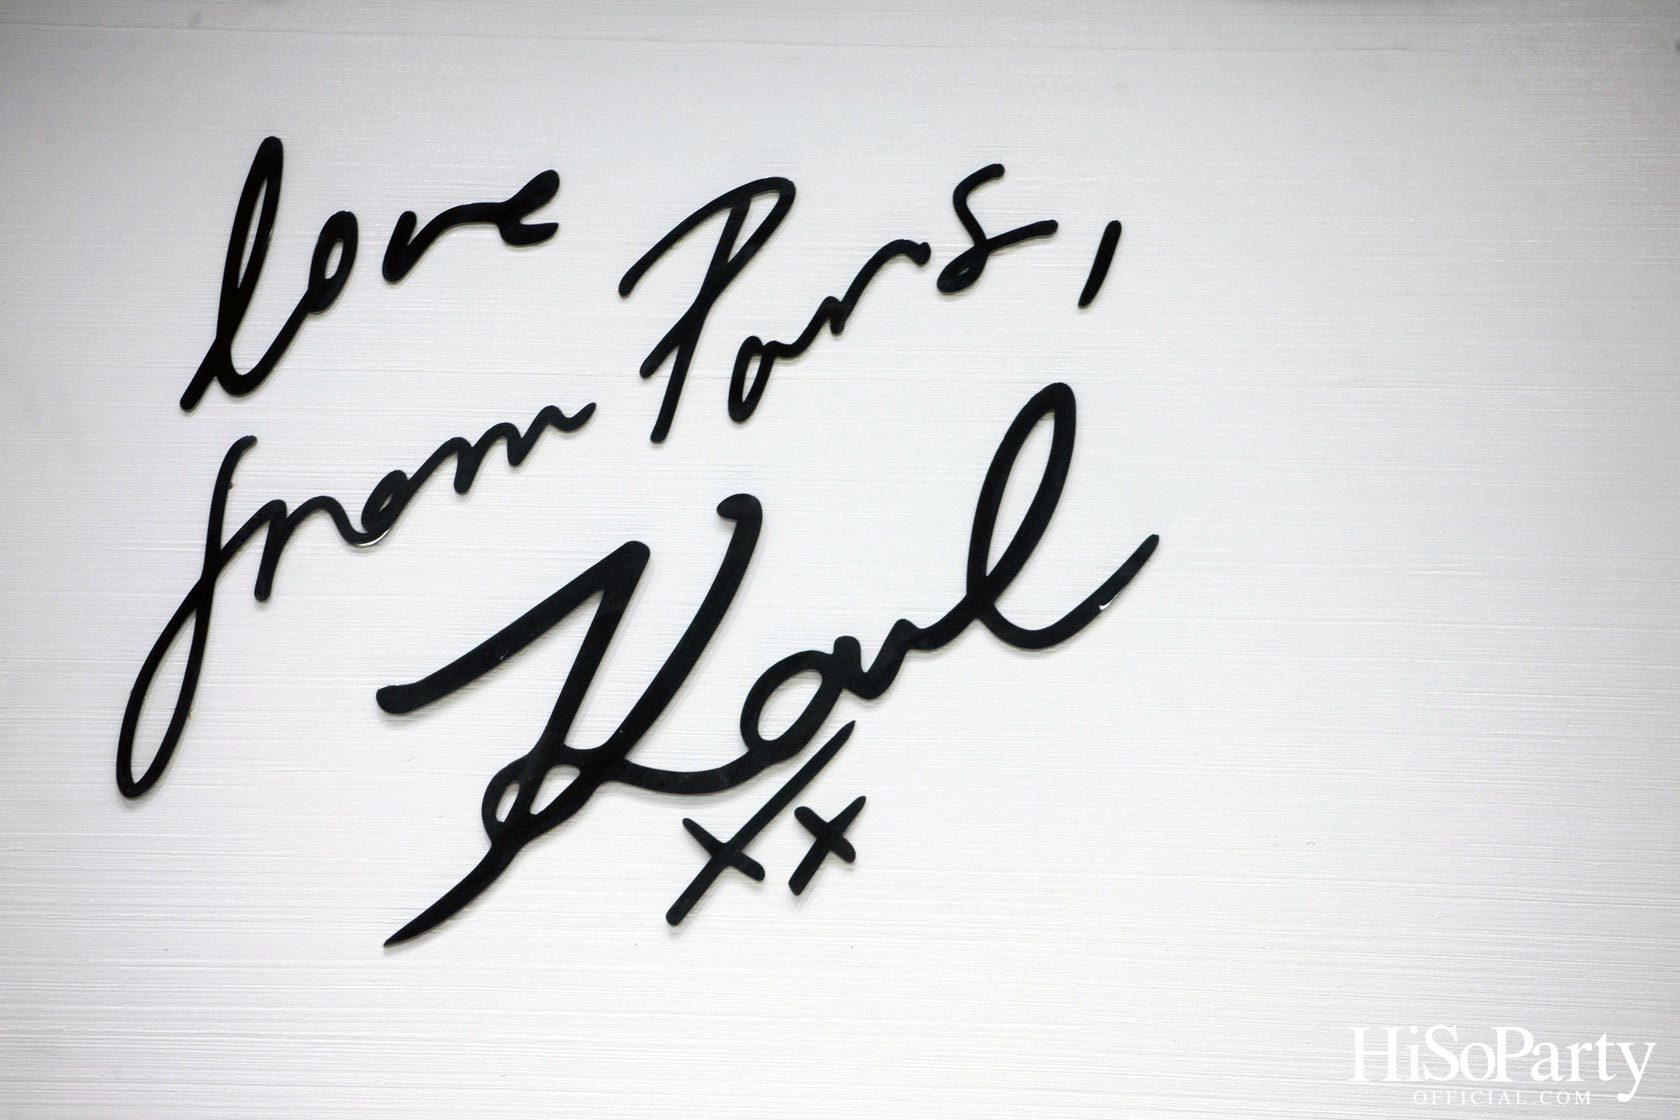 love
from Paris,
Karl
xx
HiSoParty
OFFICIAL.COM